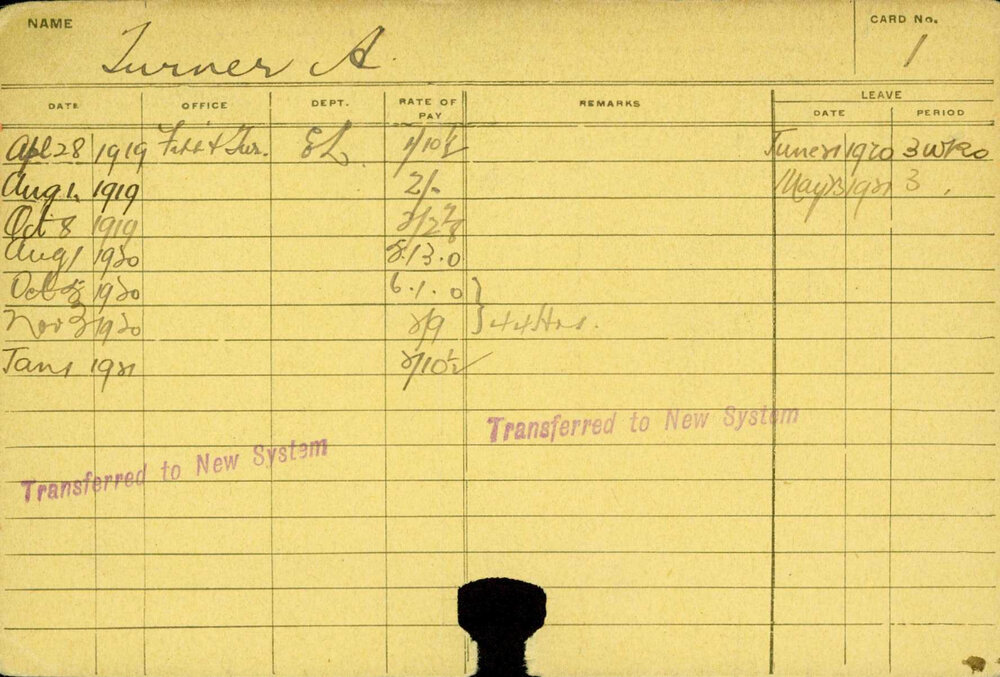 NAME Turner A. CARD No. 1
DATE OFFICE DEPT. RATE OF PAY REMARKS LEAVE
DATE PERIOD
Apl 28 1919 Fitt & Tur. EL. 1/10½ June 21 1920 3 wks
Aug 1. 1919 2/- May 23 1921 3 "
Oct 8 1919 2/2⅞
Aug 1 1920 5.13.0
Oct 1920 6.1.0
Nov 3 1920 2/9 } 44 Hrs.
Jan 1 1921 2/10½
Transferred to New System
Transferred to New System